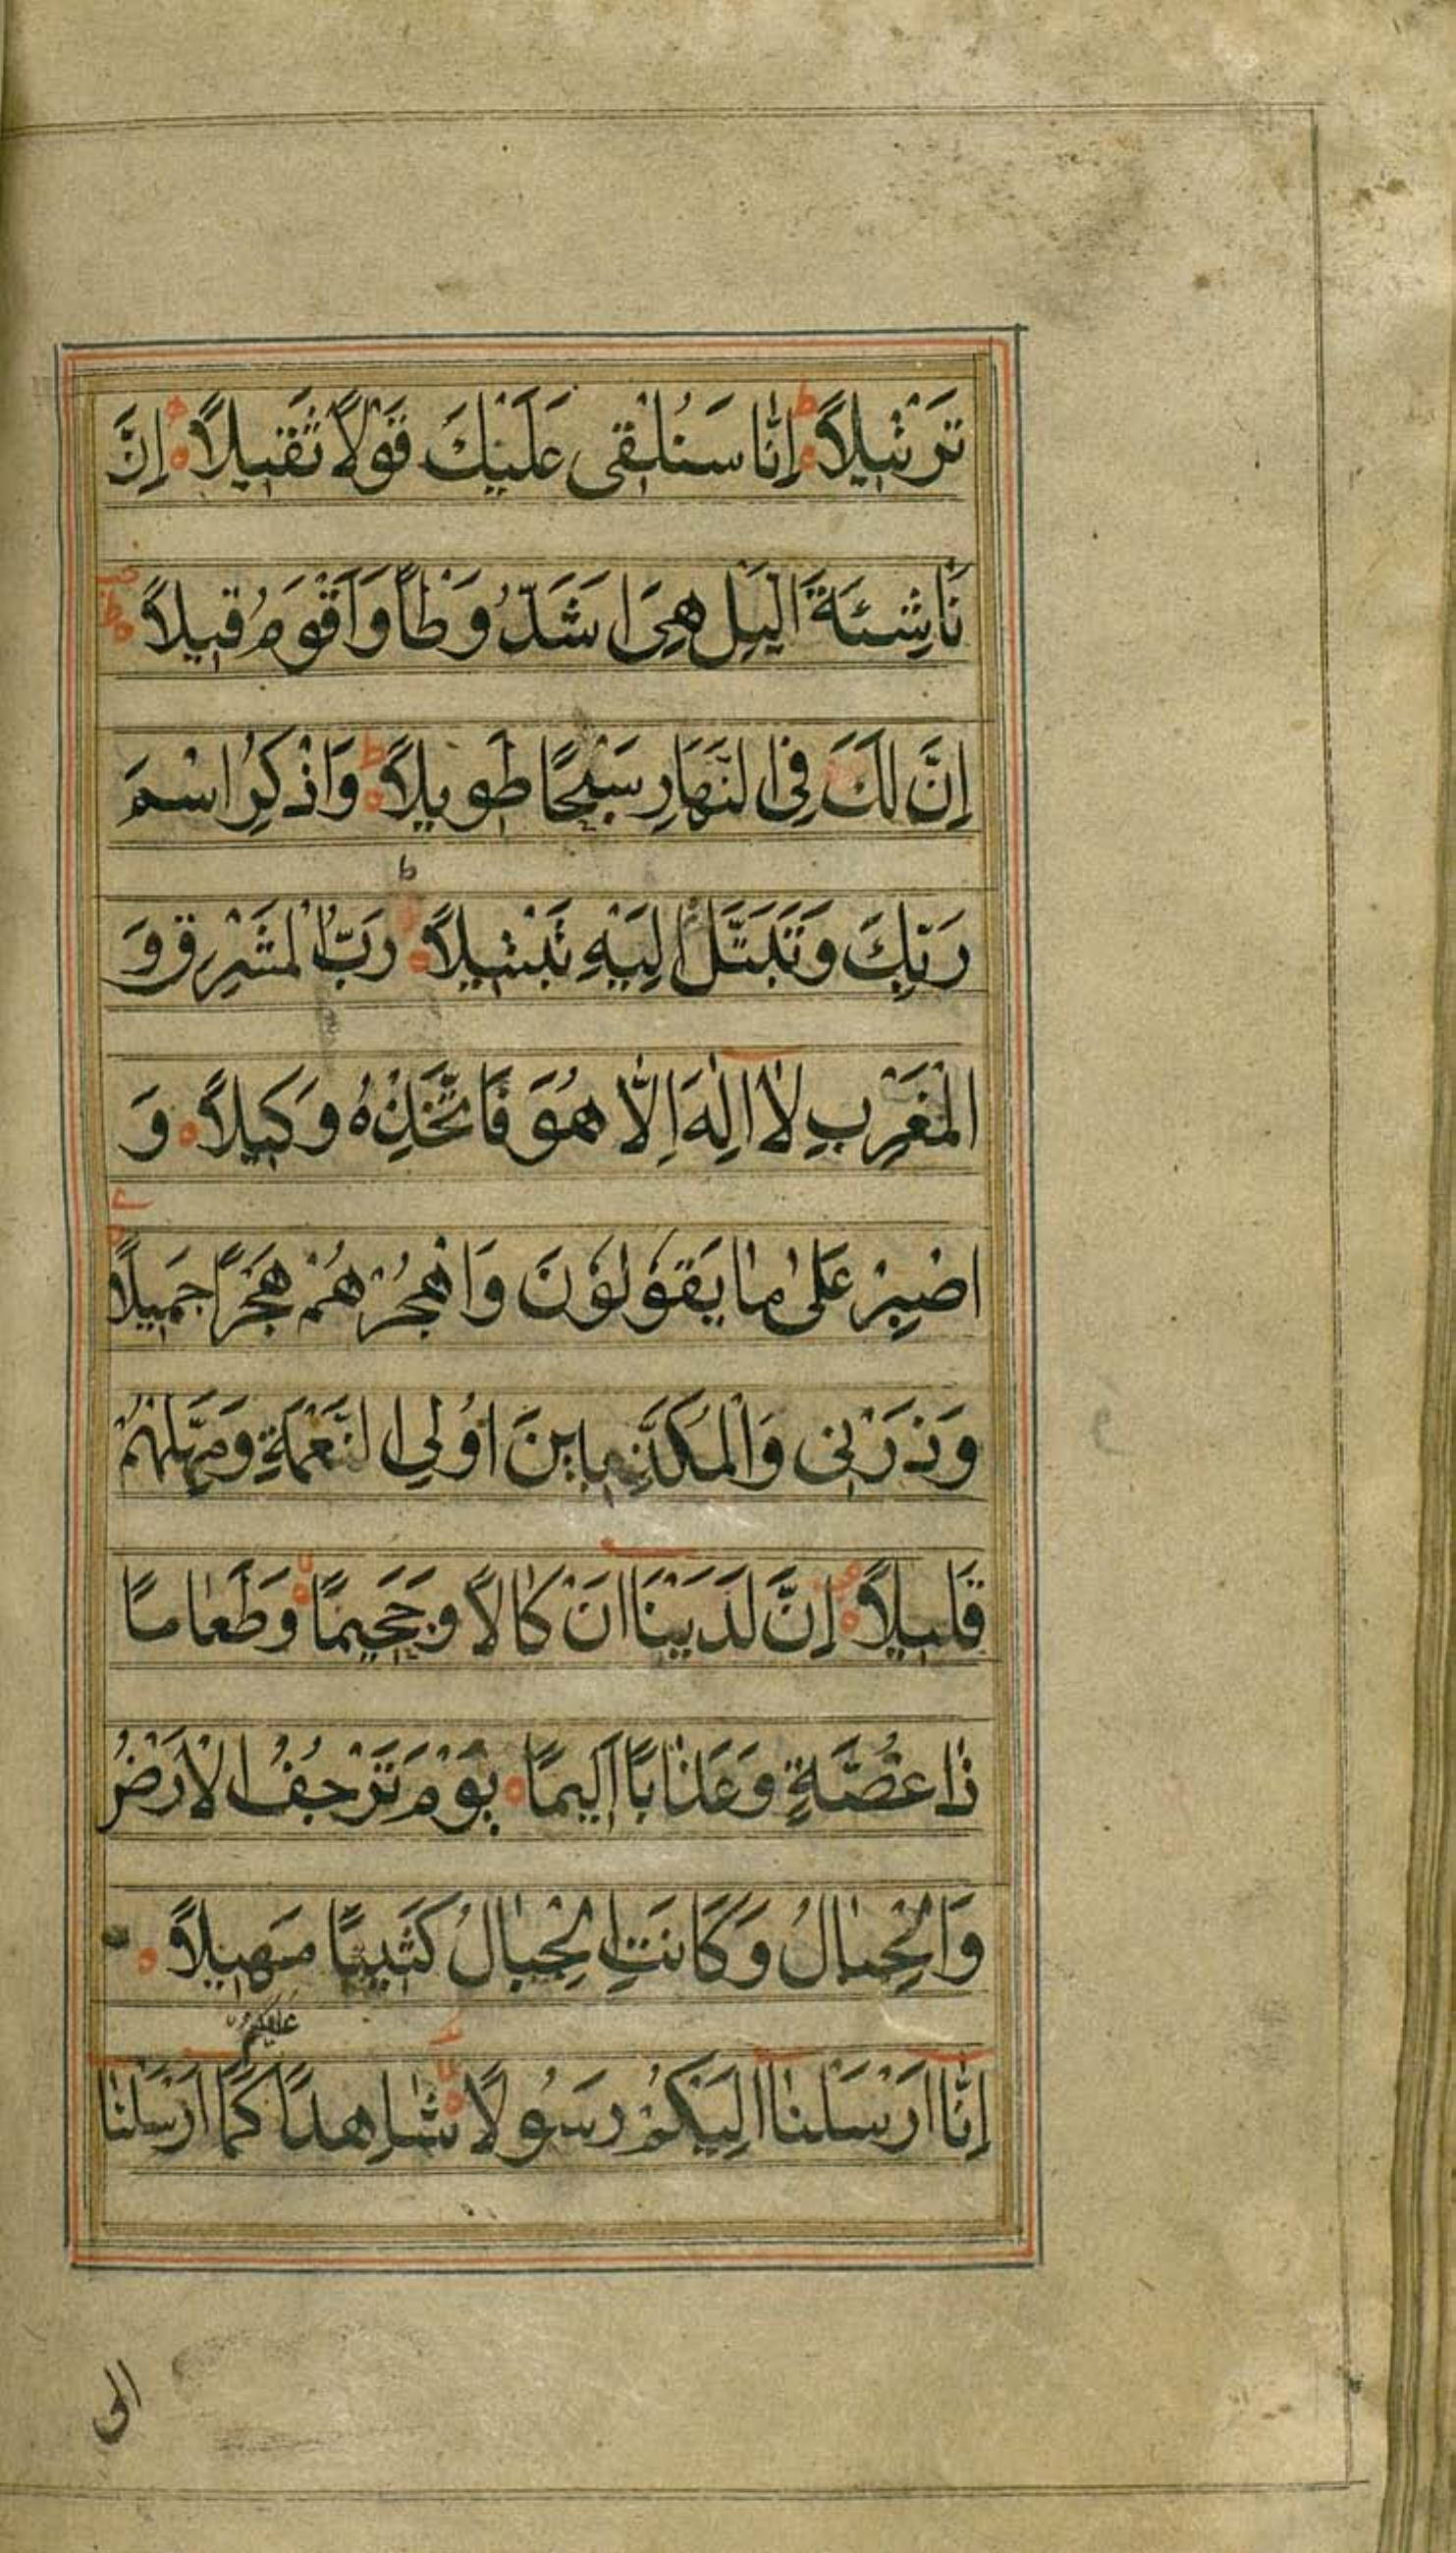 تَرْتٖيلاًؕ اِنّٰا سَنُلْقٖى عَلَيْكَ قَوْلاً ثَقٖيلاًؕ اِنَّ
نَاشِئَةَ الَّيْلِ هِىَ اَشَدُّ وَطْاً وَاَقْوَمُ قٖيلاًؕ
اِنَّ لَكَ فِى النَّهَارِ سَبْحًا طَوٖيلاًؕ وَاذْكُرِ اسْمَ
رَبِّكَ وَتَبَتَّلْ اِلَيْهِ تَبْتٖيلاًؕ رَبُّ الْمَشْرِقِ وَ
الْمَغْرِبِ لٰا اِلٰهَ اِلّٰا هُوَ فَاتَّخِذْهُ وَكٖيلاً وَ
اصْبِرْ عَلٰى مٰا يَقُولُونَ وَاهْجُرْهُمْ هَجْرًا جَمٖيلاً
وَذَرْنٖى وَالْمُكَذِّبٖينَ اُولِى النَّعْمَةِ وَمَهِّلْهُمْ
قَلٖيلاً اِنَّ لَدَيْنَا اَنْكٰالاً وَجَحٖيمًا وَطَعٰامًا
ذٰا غُصَّةٍ وَعَذٰابًا اَلٖيمًا يَوْمَ تَرْجُفُ الْاَرْضُ
وَالْجِبٰالُ وَكَانَتِ الْجِبٰالُ كَثٖيبًا مَهٖيلاً
اِنّٰا اَرْسَلْنٰا اِلَيْكُمْ رَسُولاً شٰاهِدًا عليكم كَمٰا اَرْسَلْنٰا
الى